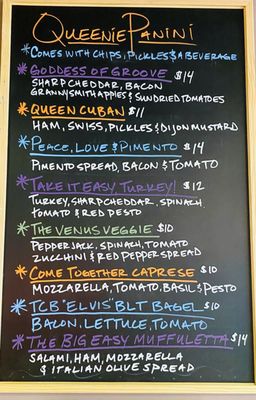 QUEENIE PANINI
*COMES WITH CHIPS, PICKLES & A BEVERAGE
*GODDESS OF GROOVE $14
SHARP CHEDDAR, BACON
GRANNY SMITH APPLES & SUNDRIED TOMATOES
*QUEEN CUBAN $11
HAM, SWISS, PICKLES & DIJON MUSTARD
*PEACE, LOVE & PIMENTO $14
PIMENTO SPREAD, BACON & TOMATO
*TAKE IT EASY TURKEY! $12
TURKEY, SHARP CHEDDAR, SPINACH
TOMATO & RED PESTO
*THE VENUS VEGGIE $10
PEPPERJACK, SPINACH, TOMATO
ZUCCHINI & RED PEPPER SPREAD
*COME TOGETHER CAPRESE $10
MOZZARELLA, TOMATO, BASIL & PESTO
*TCB "ELVIS" BLT BAGEL $10
BACON, LETTUCE, TOMATO
*THE BIG EASY MUFFULETTA $14
SALAMI, HAM, MOZZARELLA
& ITALIAN OLIVE SPREAD